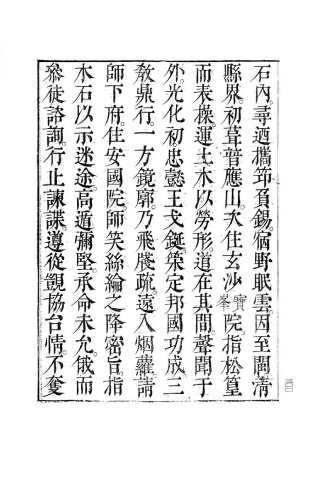 石內。尋迺攜笻負錫。宿野眠雲。因至閩清
縣界。初葺普應山。次住玄沙寶峯院。指松篁
而表操。運土木以勞形。道在其間。聲聞于
外。光化初忠懿王戈鋋筞定。邦國功成。三
敎鼎行。一方鏡廓。乃飛牋疏。遠入烟蘿。請
師下府。住安國院。師笑絲綸之降密。旨指
木石以示迷途。高遁彌堅。承命未允。俄而
叅徒諮詢。行止諫諜。遵從覬協台情。不奪